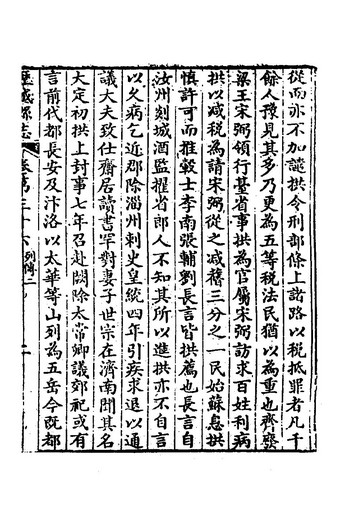 從而亦不加譴拱令刑部條上諸路以稅抵罪者凡千
餘人豫見其多乃更為五等稅法民猶以為重也齊廢
梁王宋弼領行臺省事拱為官屬宋弼訪求百姓利病
拱以減稅為請宋弼從之減舊三分之一民始蘇息拱
慎許可而推轂士李南張輔劉長言皆拱薦也長言自
汝州刻城酒監擢省郎人不知其所以進拱亦不自言
以久病乞近郡除淄州刺史皇統四年引疾求退以通
議大夫致仕齋居讀書罕對妻子世宗在濟南聞其名
大定初拱上封事七年召赴闕除太常卿議郊祀或有
言前代都長安及汴洛以太華等山列為五岳今既都
歷城縣志 卷第三十六 列傳二 二